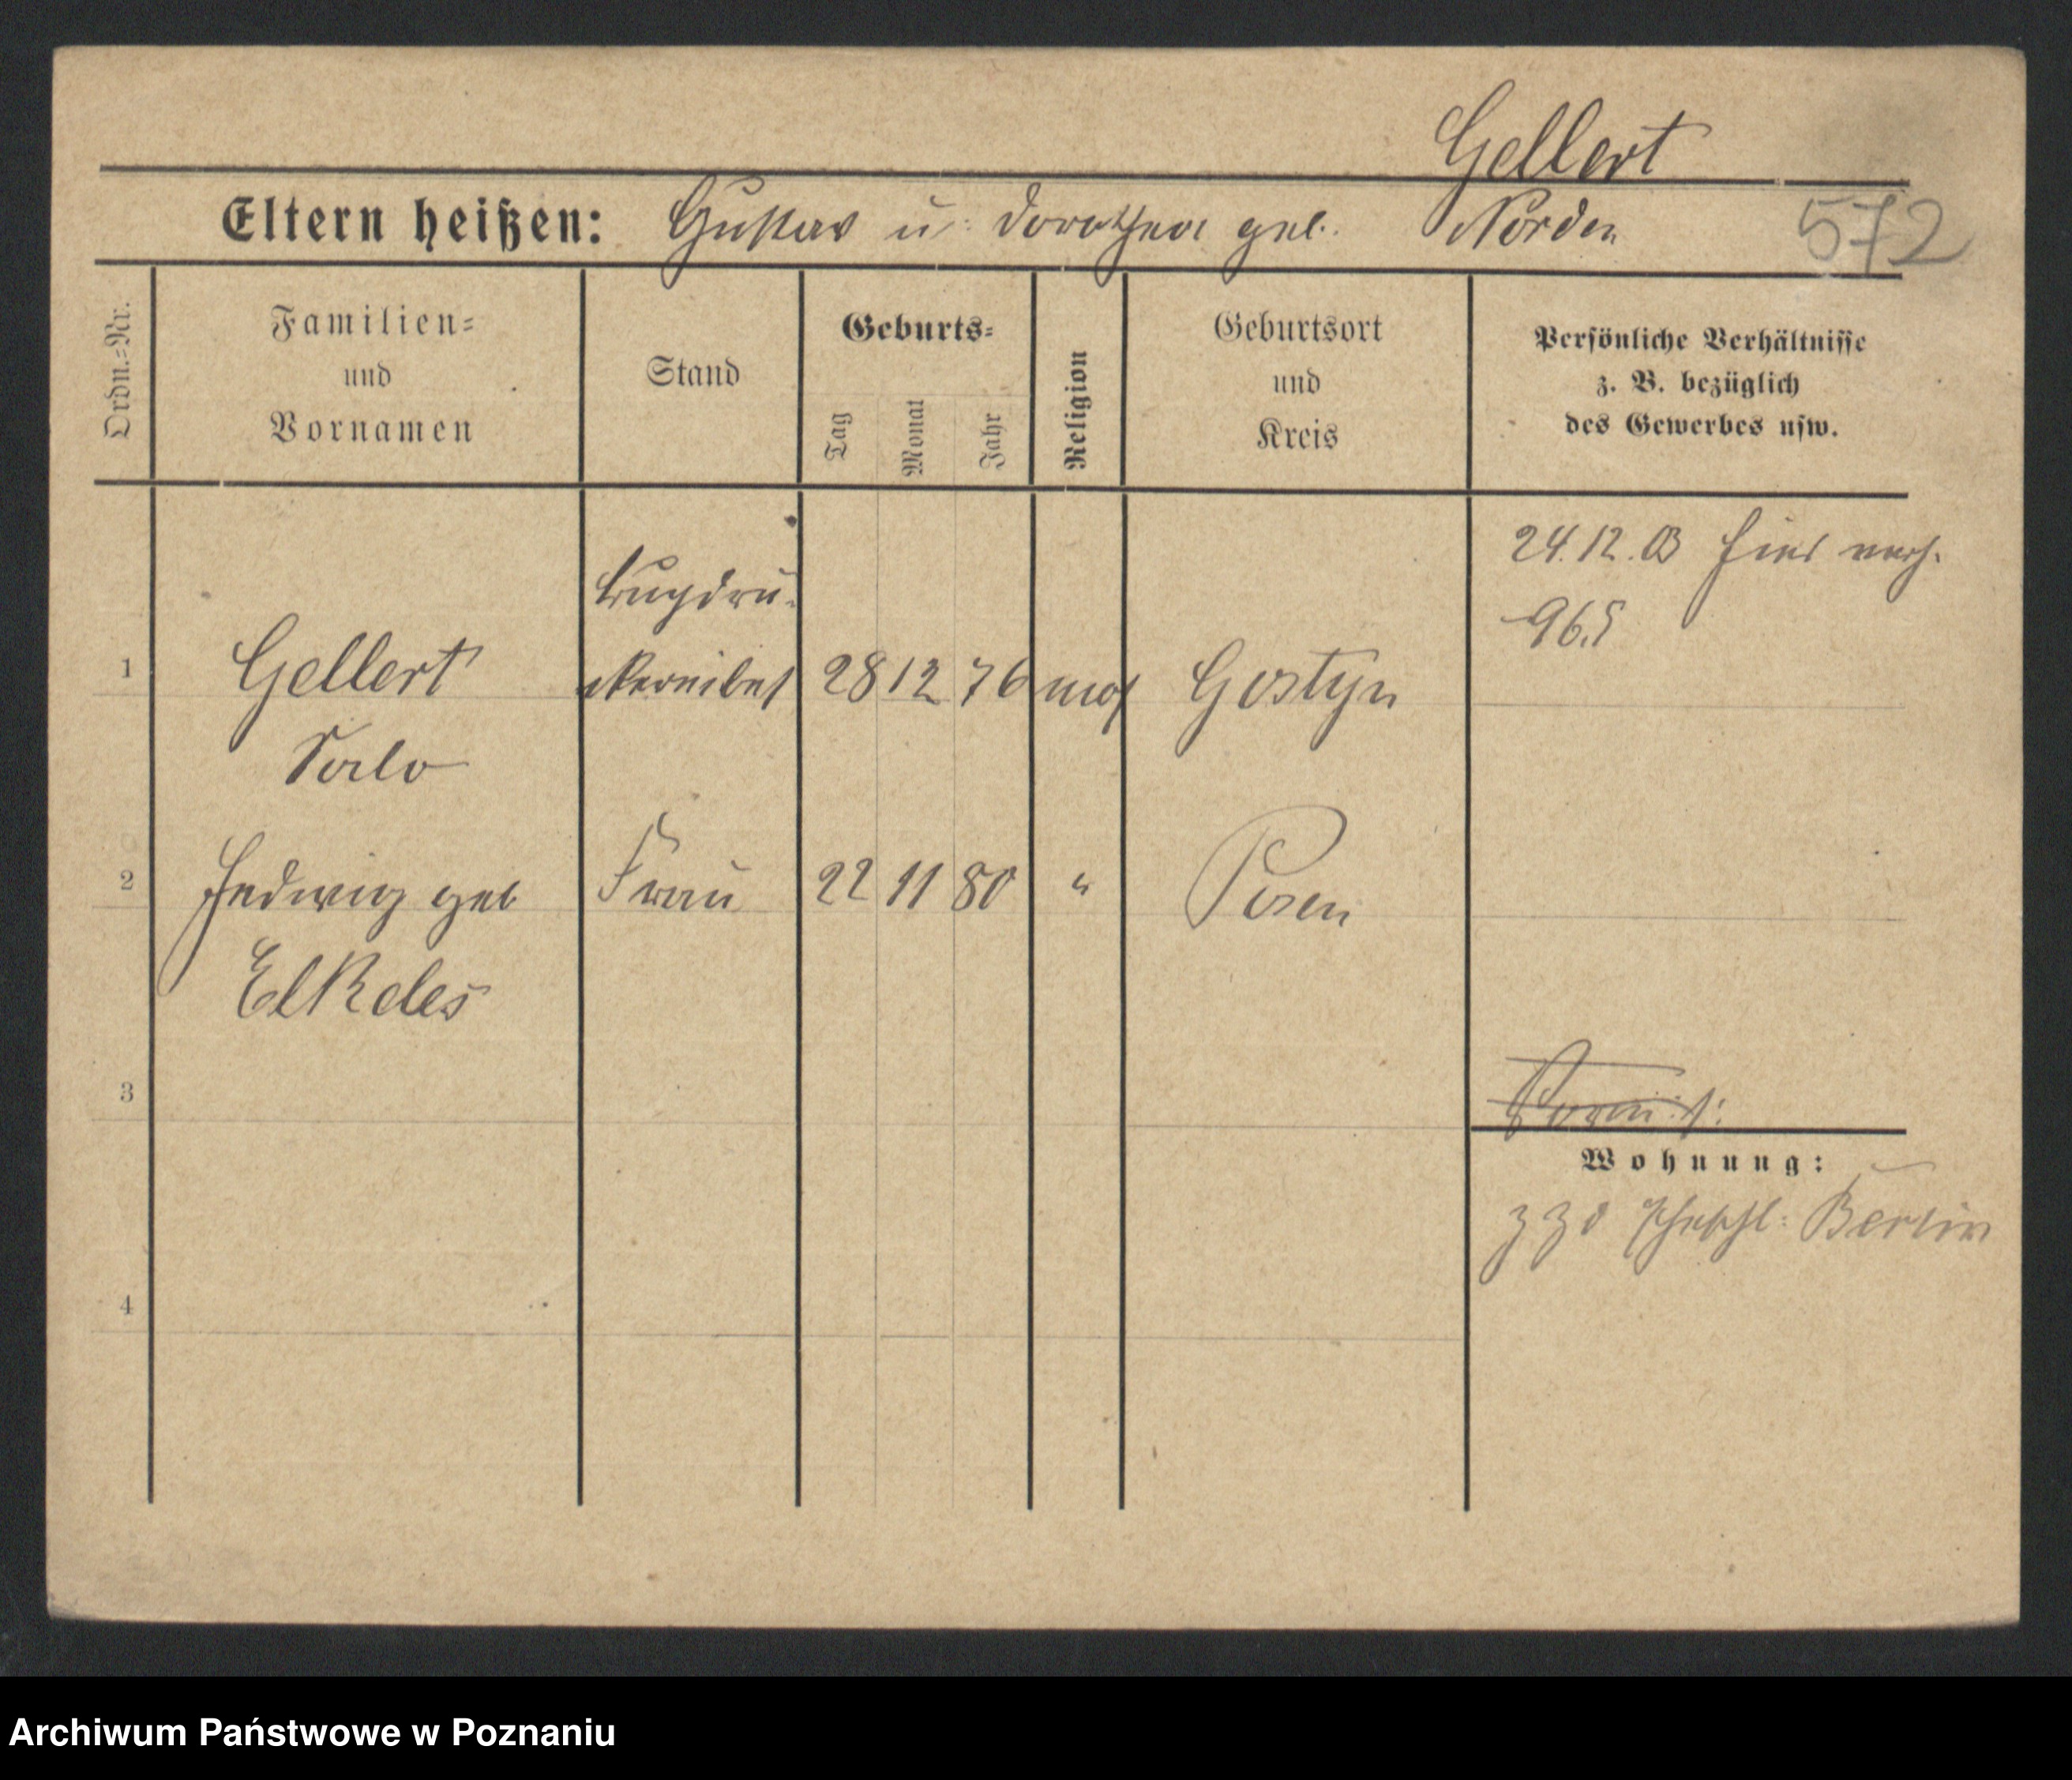 Gellert
Eltern heißen: Gustav u. Dorothea geb. Norden
572
Ordn.=Nr.
Familien=
und
Vornamen
Stand
Geburts=
Tag
Monat
Jahr
Religion
Geburtsort
und
Kreis
Persönliche Verhältnisse
z. B. bezüglich
des Gewerbes usw.
24.12.03 hier verh.
965
Buchdru-
1 Gellert ckereibes 28 12 76 mos Gostyn
Salo
2 Hedwig geb Frau 22 11 80 " Posen
Elkeles
3
Wohnung:
Berlin
4
Archiwum Państwowe w Poznaniu